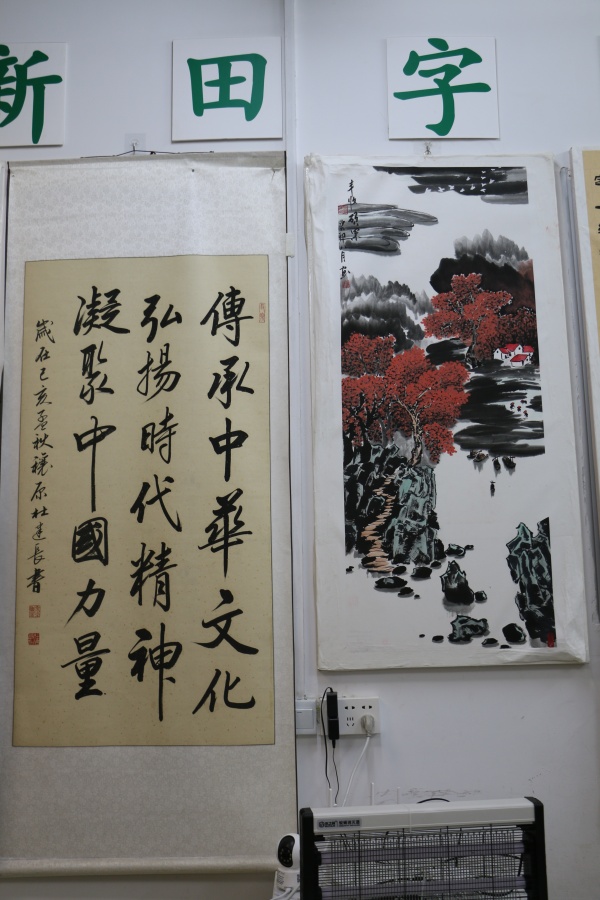 新田字
傳承中華文化
弘揚時代精神
凝聚中國力量
歲在己亥孟秋穰原杜長書